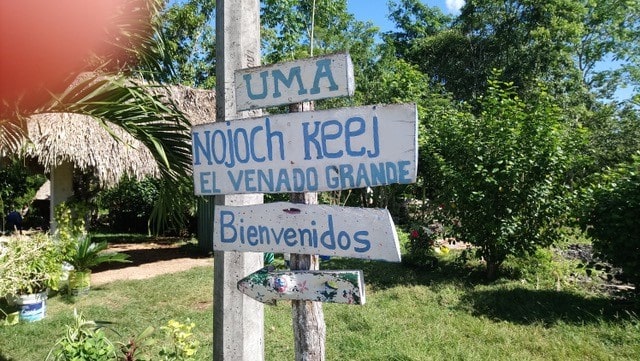 UMA
NOJOCH KEEJ
EL VENADO GRANDE
Bienvenidos